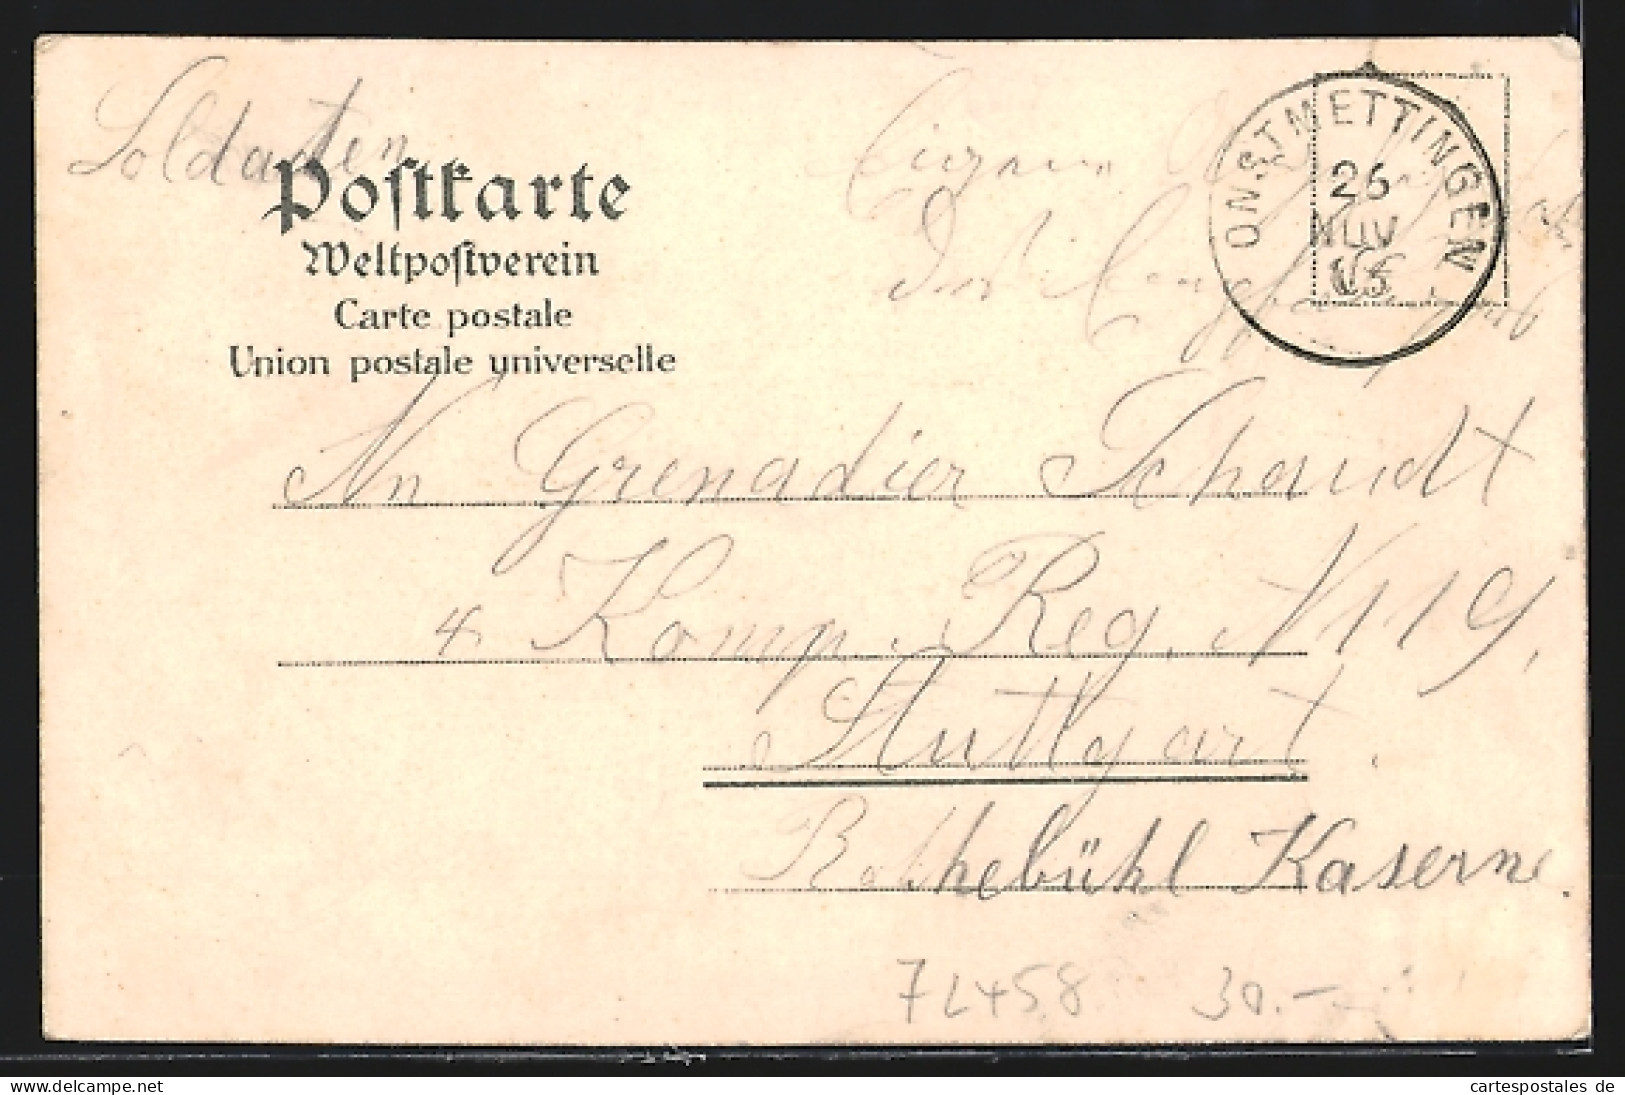 Soldaten
Postkarte
Weltpostverein
Carte postale
Union postale universelle
Eigene
ONSTMETTINGEN
26
NOV
An Grenadier Schaudt
4 Komp. Reg. N 119,
Stuttgart.
Rothebühl Kaserne.
72458 30.-
www.delcampe.net
cartespostales de